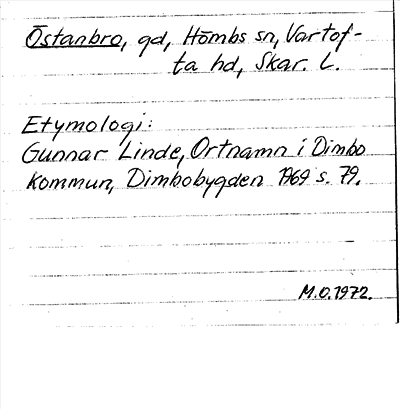 Östanbro, gd, Hömbs sn, Vartof-
ta hd, Skar. L.
Etymologi:
Gunnar Linde, Ortnamn i Dimbo
kommun, Dimbobygden 1969 s. 79.
M.O.1972.